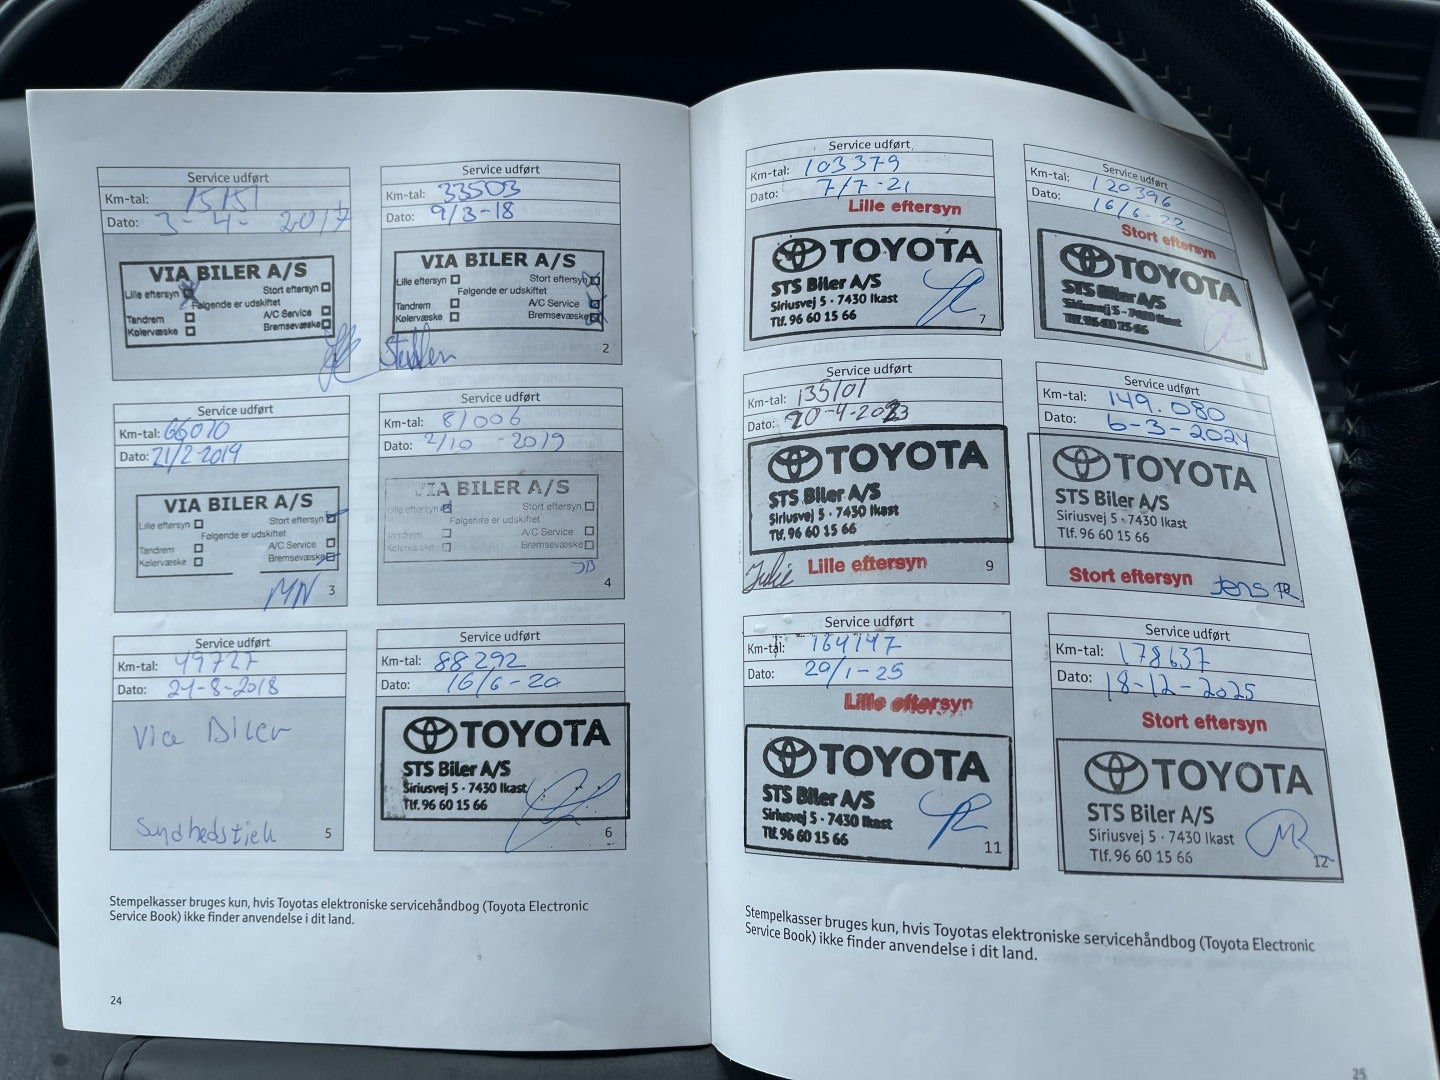 Service udført
Km-tal: 15151
Dato: 3-4-2017
VIA BILER A/S
Lille eftersyn Stort eftersyn
Følgende er udskiftet
Tandrem A/C Service
Kølervæske Bremsevæske
Service udført
Km-tal: 33503
Dato: 9/3-18
VIA BILER A/S
Lille eftersyn Stort eftersyn
Følgende er udskiftet
Tandrem A/C Service
Kølervæske Bremsevæske
2
Service udført
Km-tal: 66010
Dato: 21/2-2019
VIA BILER A/S
Lille eftersyn Stort eftersyn
Følgende er udskiftet
Tandrem A/C Service
Kølervæske Bremsevæske
MN 3
Service udført
Km-tal: 81006
Dato: 2/10-2019
VIA BILER A/S
Lille eftersyn Stort eftersyn
Følgende er udskiftet
Tandrem A/C Service
Kølervæske Bremsevæske
JB
4
Service udført
Km-tal: 49727
Dato: 24-8-2018
Via Biler
Sundhedstjek 5
Service udført
Km-tal: 88292
Dato: 16/6-20
TOYOTA
STS Biler A/S
Siriusvej 5 · 7430 Ikast
Tlf. 96 60 15 66
6
Stempelkasser bruges kun, hvis Toyotas elektroniske servicehåndbog (Toyota Electronic
Service Book) ikke finder anvendelse i dit land.
24
Service udført
Km-tal: 103379
Dato: 7/7-21
Lille eftersyn
TOYOTA
STS Biler A/S
Siriusvej 5 · 7430 Ikast
Tlf. 96 60 15 66
7
Service udført
Km-tal: 120396
Dato: 16/6-22
Stort eftersyn
TOYOTA
STS Biler A/S
Siriusvej 5 · 7430 Ikast
Tlf. 96 60 15 66
8
Service udført
Km-tal: 135101
Dato: 20-4-2023
TOYOTA
STS Biler A/S
Siriusvej 5 · 7430 Ikast
Tlf. 96 60 15 66
Julie Lille eftersyn 9
Service udført
Km-tal: 149.080
Dato: 6-3-2024
TOYOTA
STS Biler A/S
Siriusvej 5 · 7430 Ikast
Tlf. 96 60 15 66
Stort eftersyn Jens
Service udført
Km-tal: 164147
Dato: 20/1-25
Lille eftersyn
TOYOTA
STS Biler A/S
Siriusvej 5 · 7430 Ikast
Tlf. 96 60 15 66
11
Service udført
Km-tal: 178637
Dato: 18-12-2025
Stort eftersyn
TOYOTA
STS Biler A/S
Siriusvej 5 · 7430 Ikast
Tlf. 96 60 15 66
12
Stempelkasser bruges kun, hvis Toyotas elektroniske servicehåndbog (Toyota Electronic
Service Book) ikke finder anvendelse i dit land.
25